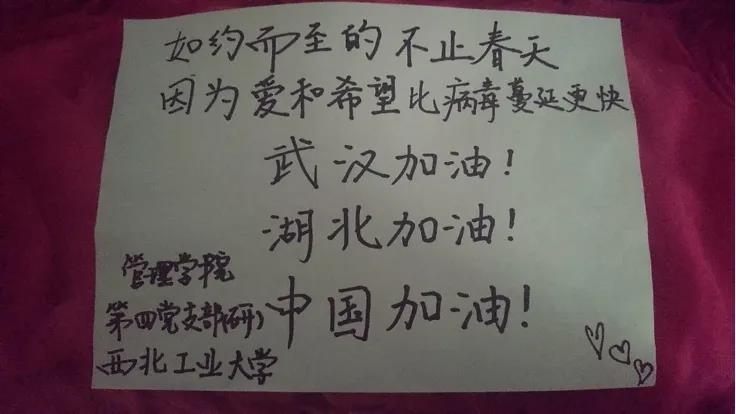 如约而至的不止春天
因为爱和希望比病毒蔓延更快
武汉加油!
湖北加油!
中国加油!
管理学院
第四党支部(研)
西北工业大学